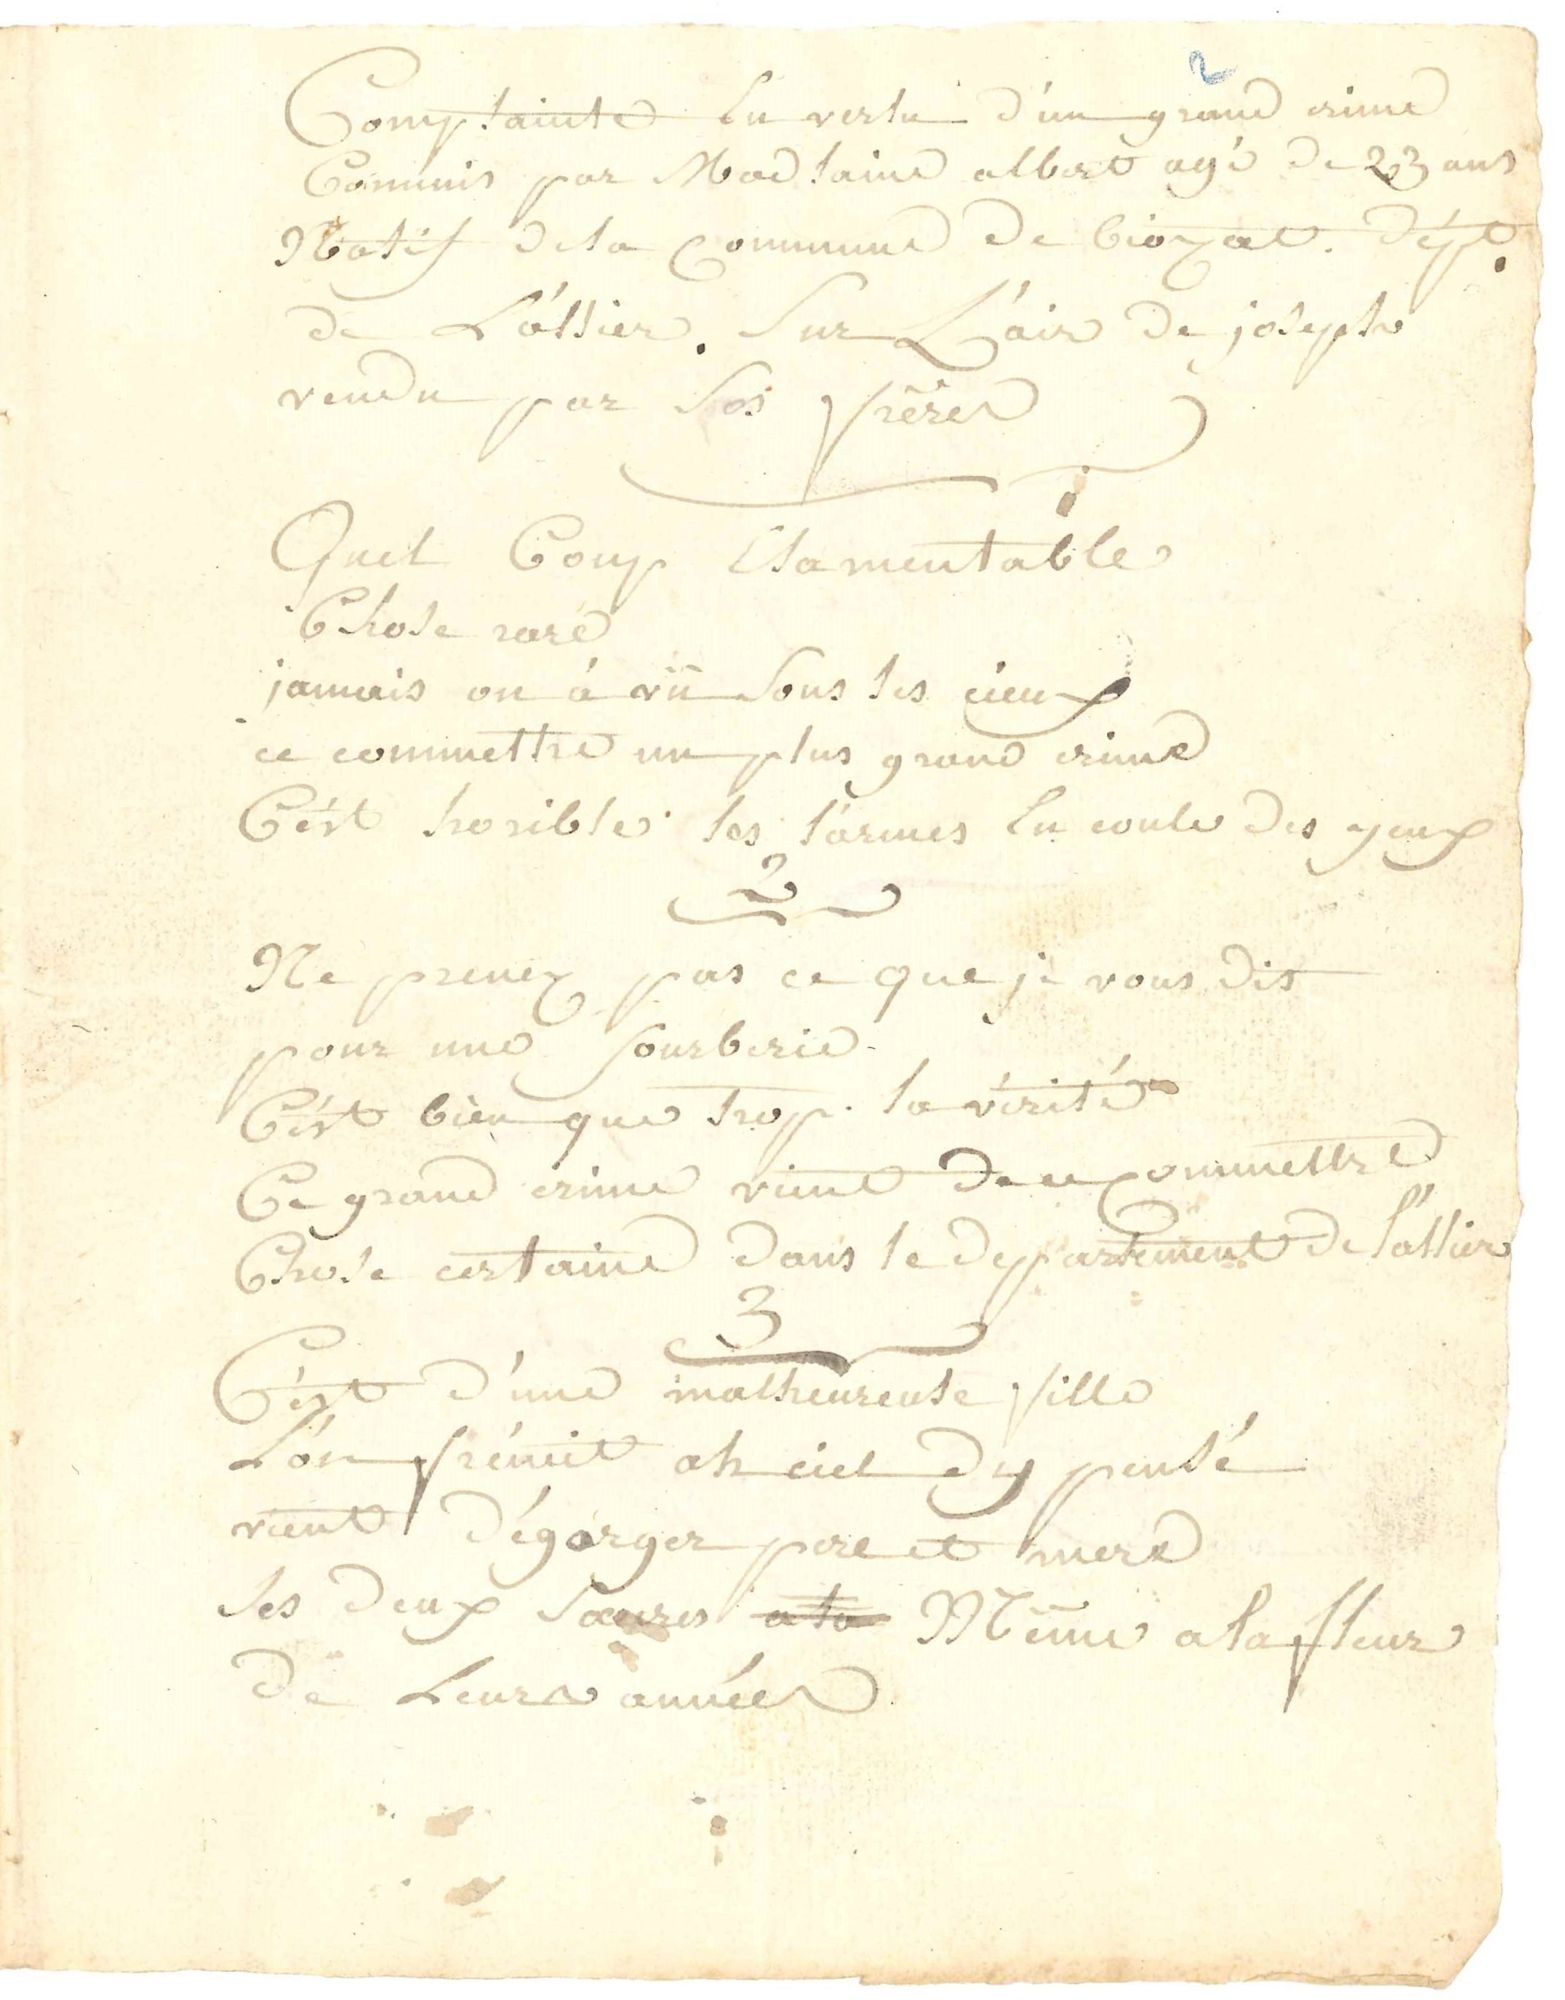 2
Complainte En vertu d'un grand crime
Commis par Madlaine albert agé de 23 ans
Natif dela Commune de biozat. dépt.
de L'allier. Sur L'air de joseph
vendu par Ses frères
Quel Coup Lamentable
Chose rare
jamais on à vü Sous les cieux
ce commettre un plus grand crime
C'ést horible les larmes En coule des yeux
2
Ne prenez pas ce que je vous dis
pour une fourberie
C'ést bien que trop. la vérité
Ce grand crime vient de ce commettre
Chose certaine dans le departement de l'allier
3
C'ést d'une malheureuse fille
L'on frémit ah ciel dy pensé
vient d'égorger pere et mere
ses deux Sœures a la Même a la fleur
de Leurs années